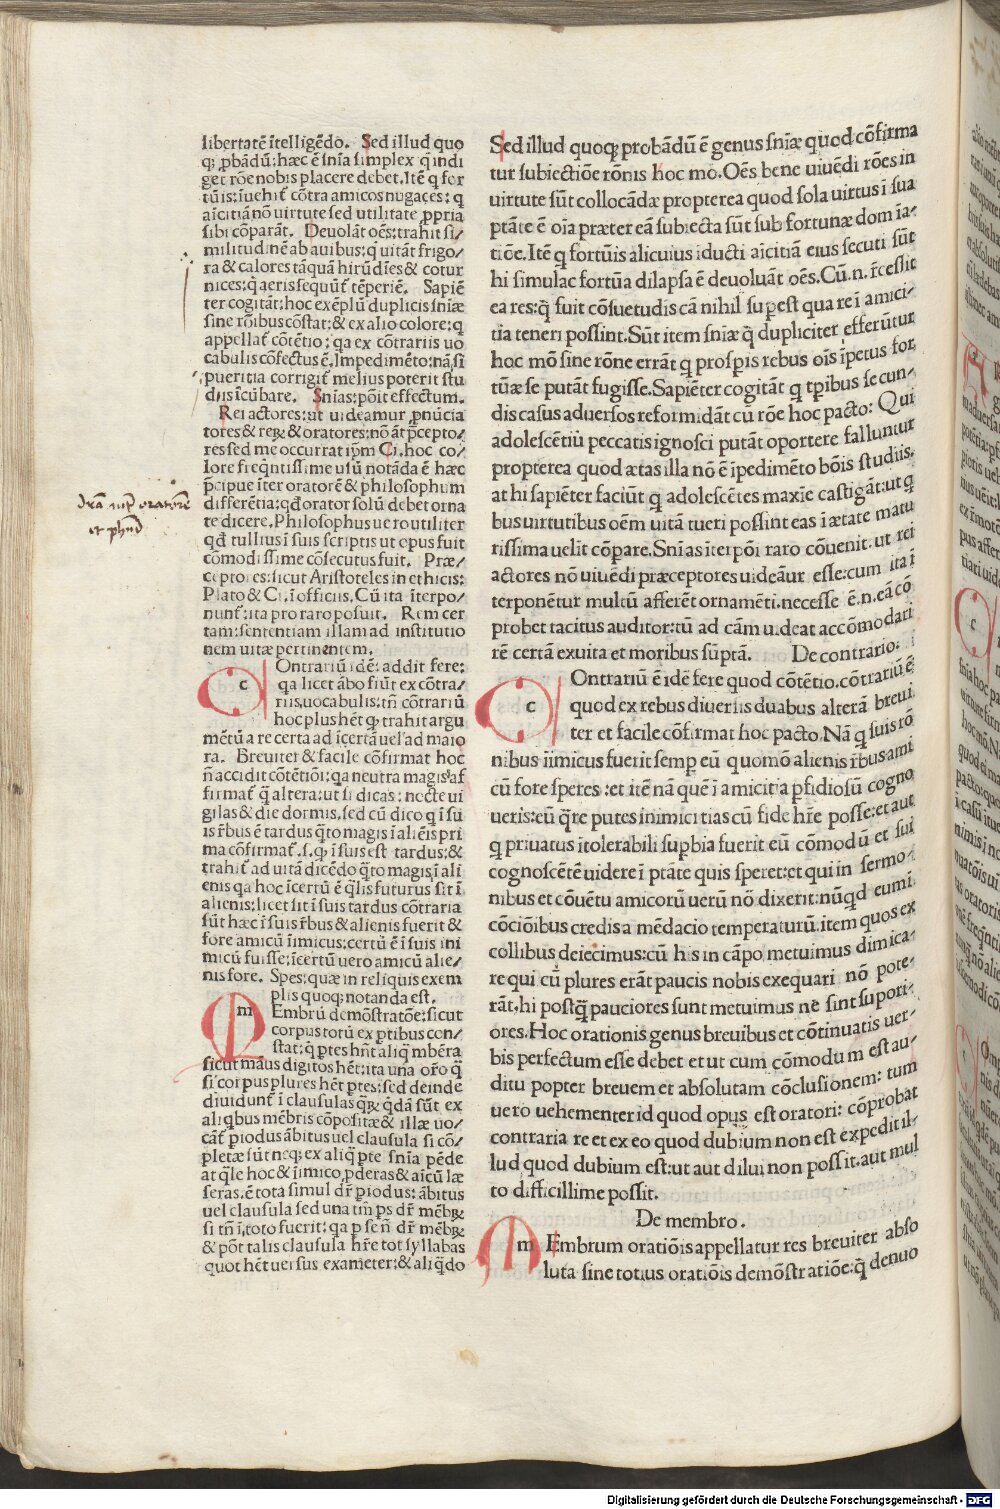 libertatē ītelligēdo. Sed illud quo
qꝫ ꝓbādū: hæc ē snīa simplex q̄ indi
get rōe nobis placere debet. Itē q̄ for
tūis: īuehit᷑ cōtra amicos nugaces: q
aīcitiā nō uirtute sed utilitate ꝓpria
sibi cōparāt. Deuolāt oēs: trahit si/
militudinē ab auibus: q̄ uitāt frigo/
ra & calores tāquā hirūdīes & cotur
nices: q̄ aeris sequūt᷑ tēperiē. Sapiē
ter cogitāt: hoc exēplū duplicis snīæ
sine rōibus cōstat: & ex alio colore: q
appellat᷑ cōtētio: qa ex cōtrariis uo
cabulis cōfectus ē. Impedimēto: nā si
pueritia corrigit᷑ melius poterit stu
diis icūbare. Snīas: pōit effectum.
Rei actores: ut uideamur ꝓnūcia
tores & reꝝ & oratores: nō āt p̄cepto/
res sed me occurrat ip̄m Ci. hoc co/
lore freq̄ntissime usū notāda ē hæc
p̄cipue īter oratorē & philosophum
differētia: qd̄ orator solū debet orna
te dicere. Philosophus uero utiliter
qd̄ tullius ī suis scriptis ut opus fuit
cōmodissime cōsecutus fuit. Præ/
ceptores: sicut Aristoteles in ethicis:
Plato & Ci. ī officiis. Cū ita īterpo/
nunt᷑: ita pro raro posuit. Rem cer
tam: sententiam illam ad institutio
nem uitæ pertinentem.
c Ontrariū idē: addit fere:
qa licet ābo fiūt ex cōtra/
riis uocabulis: tn̄ cōtrariū
hoc plus hēt qꝫ trahit argu
mētū a re certa ad īcertā uel ad maio
ra. Breuiter & facile cōfirmat hoc
n̄ accidit cōtētiōi: qa neutra magis af
firmat᷑ q̄ altera: ut si dicas: nocte ui
gilas & die dormis, sed cū dico q ī su
is r̄bus ē tardus q̄to magis ī aliēis pri
ma cōfirmat᷑. s. qꝫ ī suis est tardus: &
trahit᷑ ad uitā dicēdo q̄to magis ī ali
enis qa hoc īcertū ē q̄lis futurus sit ī
alienis: licet sit ī suis tardus cōtraria
sūt hæc ī suis r̄bus & alienis fuerit &
fore amicū īimicus: certū ē ī suis ini
micū fuisse: īcertū uero amicū alie/
nis fore. Spes: quæ in reliquis exem
plis quoqꝫ notanda est.
m Embrū demōstratōe: sicut
corpus totū ex ptibus con/
stat: q̄ ptes hn̄t aliq̄ mb̄era
sicut maus digitos hēt: ita una orō q̄
si corpus plures hēt ptes: sed deinde
diuidunt᷑ ī clausulas q̄ꝝ q̄dā sūt ex
aliqbus mēbris cōpositæ & illæ uo/
cāt᷑ piodus ābitus uel clausula si cō/
pletæ sūt neqꝫ ex aliq̄ pte snīa pēde
at q̄le hoc & īimico, pderas & aīcū læ
seras, ē tota simul dr̄ piodus: ābitus
uel clausula sed una tm̄ ps dr̄ mēbꝝ
si tn̄ ī toto fuerit: qa p se n̄ dr̄ mēbꝝ
& pōt talis clausula hr̄e tot syllabas
quot hēt uersus exameter: & aliq̄do
Sed illud quoqꝫ probādū ē genus snīæ quod cōfirma
tur subiectiōe rōnis hoc mō. Oēs bene uiuēdi rōes in
uirtute sūt collocādæ propterea quod sola uirtus ī sua
ptāte ē oīa præter eā subiecta sūt sub fortunæ domīa-
tiōe. Itē q fortūis alicuius iducti aīcitiā eius secuti sūt
hi simulac fortūa dilapsa ē deuoluāt oēs. Cū. n. r̄cessit
ea res: q̄ fuit cōsuetudis cā nihil supest qua re ī amici-
tia teneri possint. Sūt item snīæ q̄ dupliciter efferūtur
hoc mō sine rōne errāt q prospis rebus oīs īpetus for
tūæ se putāt fugisse. Sapiēter cogitāt q tpibus secun-
dis casus aduersos reformidāt cū rōe hoc pacto: Qui
adolescētiū peccatis ignosci putāt oportere falluntur
propterea quod ætas illa nō ē īpedimēto bōis studiis.
at hi sapiēter faciūt q adolescētes maxīe castigāt: ut q
bus uirtutibus oēm uitā tueri possint eas ī ætate matu
rissima uelit cōpare. Snīas īterpōi raro cōuenit: ut rei
actores nō uiuēdi præceptores uideāur esse: cum ita ī
terponētur multū afferēt ornamēti. necesse ē. n. eā cō
probet tacitus auditor: tū ad cām uideat accōmodari
rē certā ex uita et moribus sūptā. De contrario.
c Ontrariū ē idē fere quod cōtētio. cōtrariū ē
quod ex rebus diuersis duabus alterā breui
ter et facile cōfirmat hoc pacto. Nā q suis rō
nibus iimicus fuerit semp eū quomō alienis r̄bus ami
cū fore speres: et itē nā que ī amicitia pfidiosū cogno
ueris: eū q̄re putes inimicitias cū fide hr̄e posse: et aut
q priuatus itolerabili supbia fuerit eū cōmodū et sui
cognoscētē uidere ī ptāte quis speret: et qui in sermo-
nibus et cōuētu amicorū uerū nō dixerit: nūqd eum ī
cōciōibus credis a mēdacio temperaturū: item quos ex
collibus deiecimus: cū his in cāpo metuimus dimica-
re qui cū plures erāt paucis nobis exequari nō pote-
rāt, hi postq̄ pauciores sunt metuimus ne sint supori-
ores. Hoc orationis genus breuibus et cōtinuatis uer-
bis perfectum esse debet et ut cum cōmodum est au-
ditu popter breuem et absolutam cōclusionem: tum
uero uehementer id quod opus est oratori: cōprobat
contraria re et ex eo quod dubium non est expedit il-
lud quod dubium est: ut aut dilui non possit. aut mul
to difficillime possit.
De membro.
m Embrum oratiōis appellatur res breuiter abso
luta sine totius oratiōis demōstratiōe: q̄ denuo
Digitalisierung gefördert durch die Deutsche Forschungsgemeinschaft - DFG